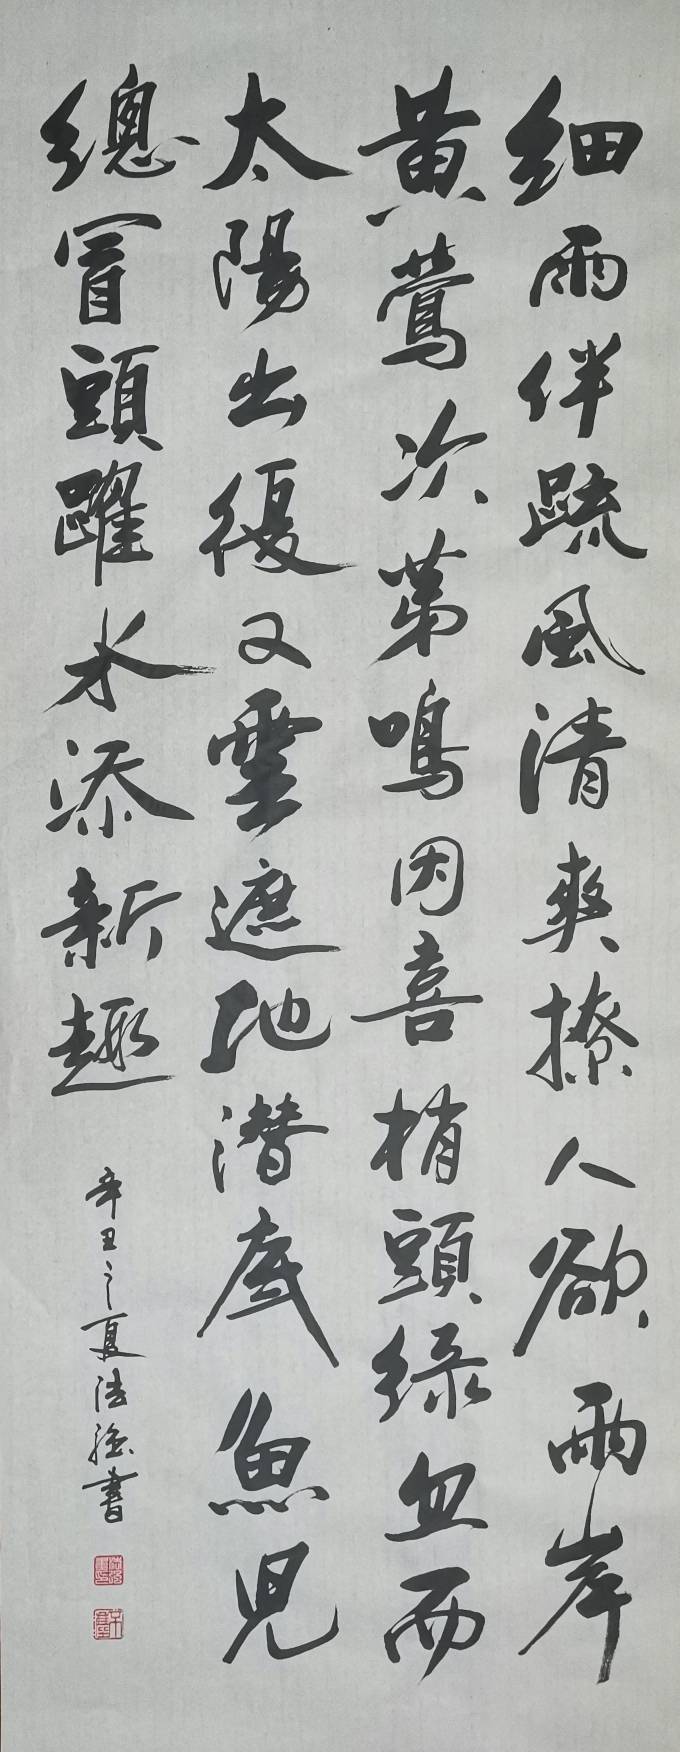 細雨伴疏風清爽撩人欲兩岸
黃鶯次第鳴因喜梢頭綠
太陽出復又雲遮地潛底魚兒
總冒頭躍水添新趣
辛丑之夏 書